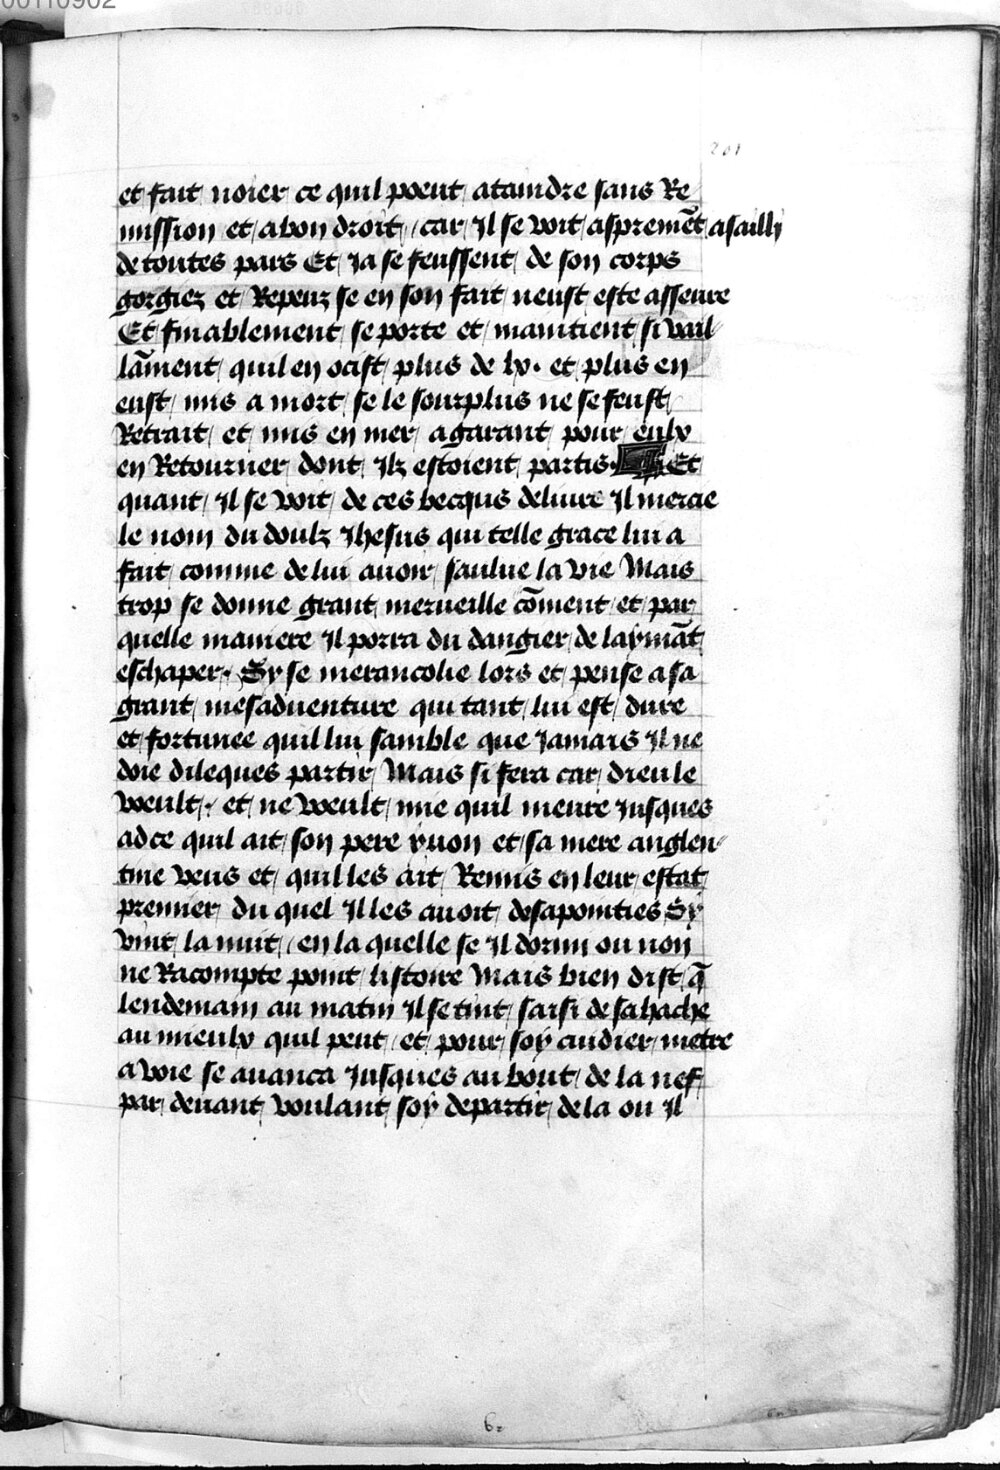 201
et fait noier ce quil poeut ataindre sans Re
mission et a bon droit car Il se voit aspremēt asailli
de toutes pars Et Ja se feussent de son corps
gorgiez et Repeuz se en son fait neust este asseure
Et finablement se porte et maintient si vail
lāment quil en ocist plus de lx. et plus en
eust mis a mort se le sourplus ne se feust
Retrait et mis en mer a garant pour eulx
en Retourner dont Ilz estoient partis. Et
quant Il se voit de ces becqus deliure Il mercie
le nom du doulz Jhesus qui telle grace lui a
fait comme de lui auoir saulue la vie Mais
trop se donne grant merueille cōment et par
quelle maniere Il porra du dangier de laymāt
eschaper. Sy se merancolie lors et pense a sa
grant mesaduenture qui tant lui est dure
et fortunee quil lui samble que Jamais Il ne
doie dileques partir Mais si fera car dieu le
voeult. et ne voeult mie quil meure Jusques
ad ce quil ait son pere yuon et sa mere anglen
tine veus et quil les ait Remis en leur estat
premier du quel Il les auoit desapointies Sy
vint la nuit en la quelle se Il dormi ou non
ne Racompte point listoire Mais bien dist q̄
lendemain au matin Il se tint saisi de sa hache
au mieulx quil peut et pour soy cuidier metre
a voie se auanca Jusques au bout de la nef
par deuant voulant soy departir de la ou Il